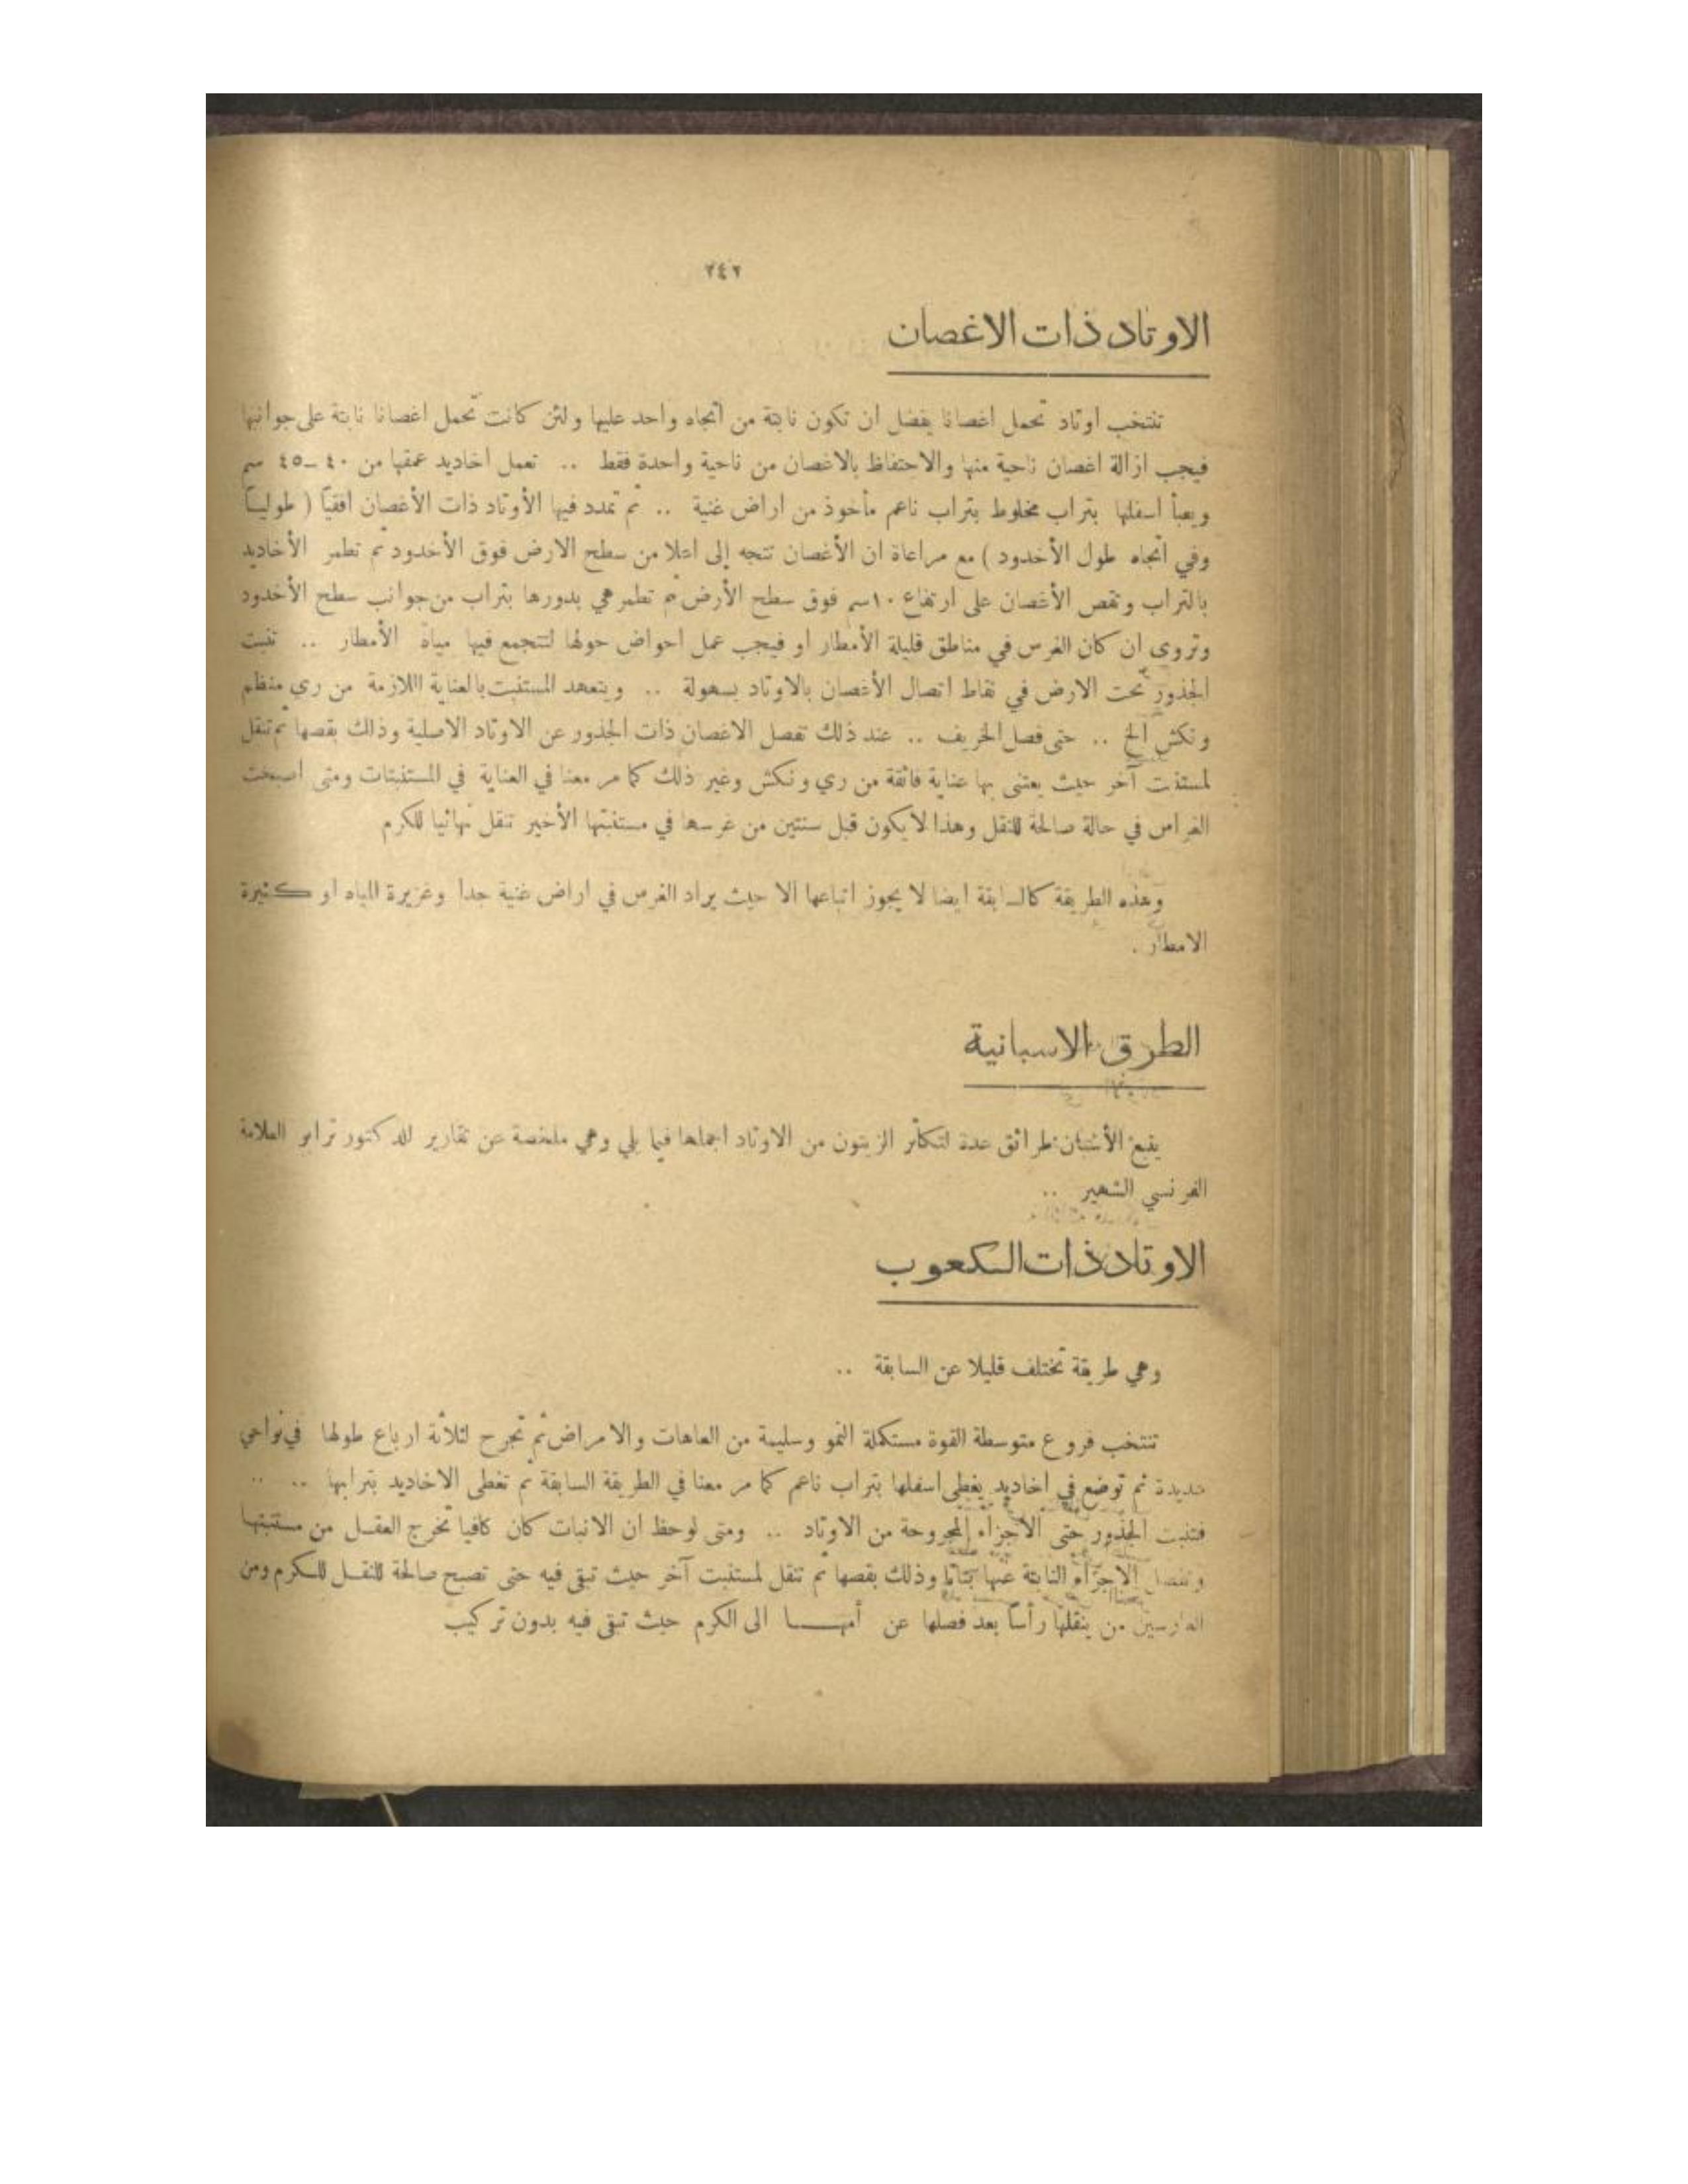 ٢٤٢
الاوتاد ذات الاغصان
تنتخب اوتاد تحمل اغصانا يفضل ان تكون نابتة من اتجاه واحد عليها ولئن كانت تحمل اغصانا نابتة على جوانبها
فيجب ازالة اغصان ناحية منها والاحتفاظ بالاغصان من ناحية واحدة فقط .. تعمل اخاديد عمقها من ٤٠ـ٤٥ سم
ويعبأ اسفلها بتراب مخلوط بتراب ناعم مأخوذ من اراض غنية .. ثم تمدد فيها الأوتاد ذات الأغصان افقياً ( طولياً
وفي اتجاه طول الأخدود ) مع مراعاة ان الأغصان تتجه إلى اعلا من سطح الارض فوق الأخدود ثم تطمر الأخاديد
بالتراب وتقص الأغصان على ارتفاع ١٠سم فوق سطح الأرض ثم تطمر هي بدورها بتراب من جوانب سطح الأخدود
وتروى ان كان الغرس في مناطق قليلة الأمطار او فيجب عمل احواض حولها لتتجمع فيها مياه الأمطار .. تنبت
الجذور تحت الارض في نقاط اتصال الأغصان بالاوتاد بسهولة .. ويتعهد المستنبت بالعناية اللازمة من ري منظم
ونكش الخ .. حتى فصل الخريف .. عند ذلك تفصل الاغصان ذات الجذور عن الاوتاد الاصلية وذالك بقصها ثم تنقل
لمستنبت آخر حيث يعتنى بها عناية فائقة من ري ونكش وغير ذلك كما مر معنا في العناية في المستنبتات ومتى اصبحت
الغراس في حالة صالحة للنقل وهذا لا يكون قبل سنتين من غرسها في مستنبتها الأخير تنقل نهائيا للكرم
وهذه الطريقة كالسابقة ايضا لا يجوز اتباعها الا حيث يراد الغرس في اراض غنية جدا وغزيرة المياه او كثيرة
الامطار .
الطرق الاسبانية
يتبع الأسبان طرائق عدة لتكاثر الزيتون من الاوتاد اجملها فيما يلي وهي ملخصة عن تقارير للدكتور ترابو العلامة
الفرنسي الشهير ..
الاوتاد ذات الكعوب
وهي طريقة تختلف قليلا عن السابقة ..
تنتخب فروع متوسطة القوة مستكملة النمو وسليمة من العاهات والامراض ثم تجرح لثلاثة ارباع طولها في نواحي
عديدة ثم توضع في اخاديد يغطى اسفلها بتراب ناعم كما مر معنا في الطريقة السابقة ثم تغطى الاخاديد بترابها .. ..
فتنبت الجذور حتى الأجزاء المجروحة من الاوتاد .. ومتى لوحظ ان الانبات كان كافيا تخرج العقل من مستنبتها
وتفصل الاجزاء النابتة عنها بتاتا وذلك بقصها ثم تنقل لمستنبت آخر حيث تبقى فيه حتى تصبح صالحة للنقل للكرم ومن
الغارسين من ينقلها رأساً بعد فصلها عن أمها الى الكرم حيث تبقى فيه بدون تركيب